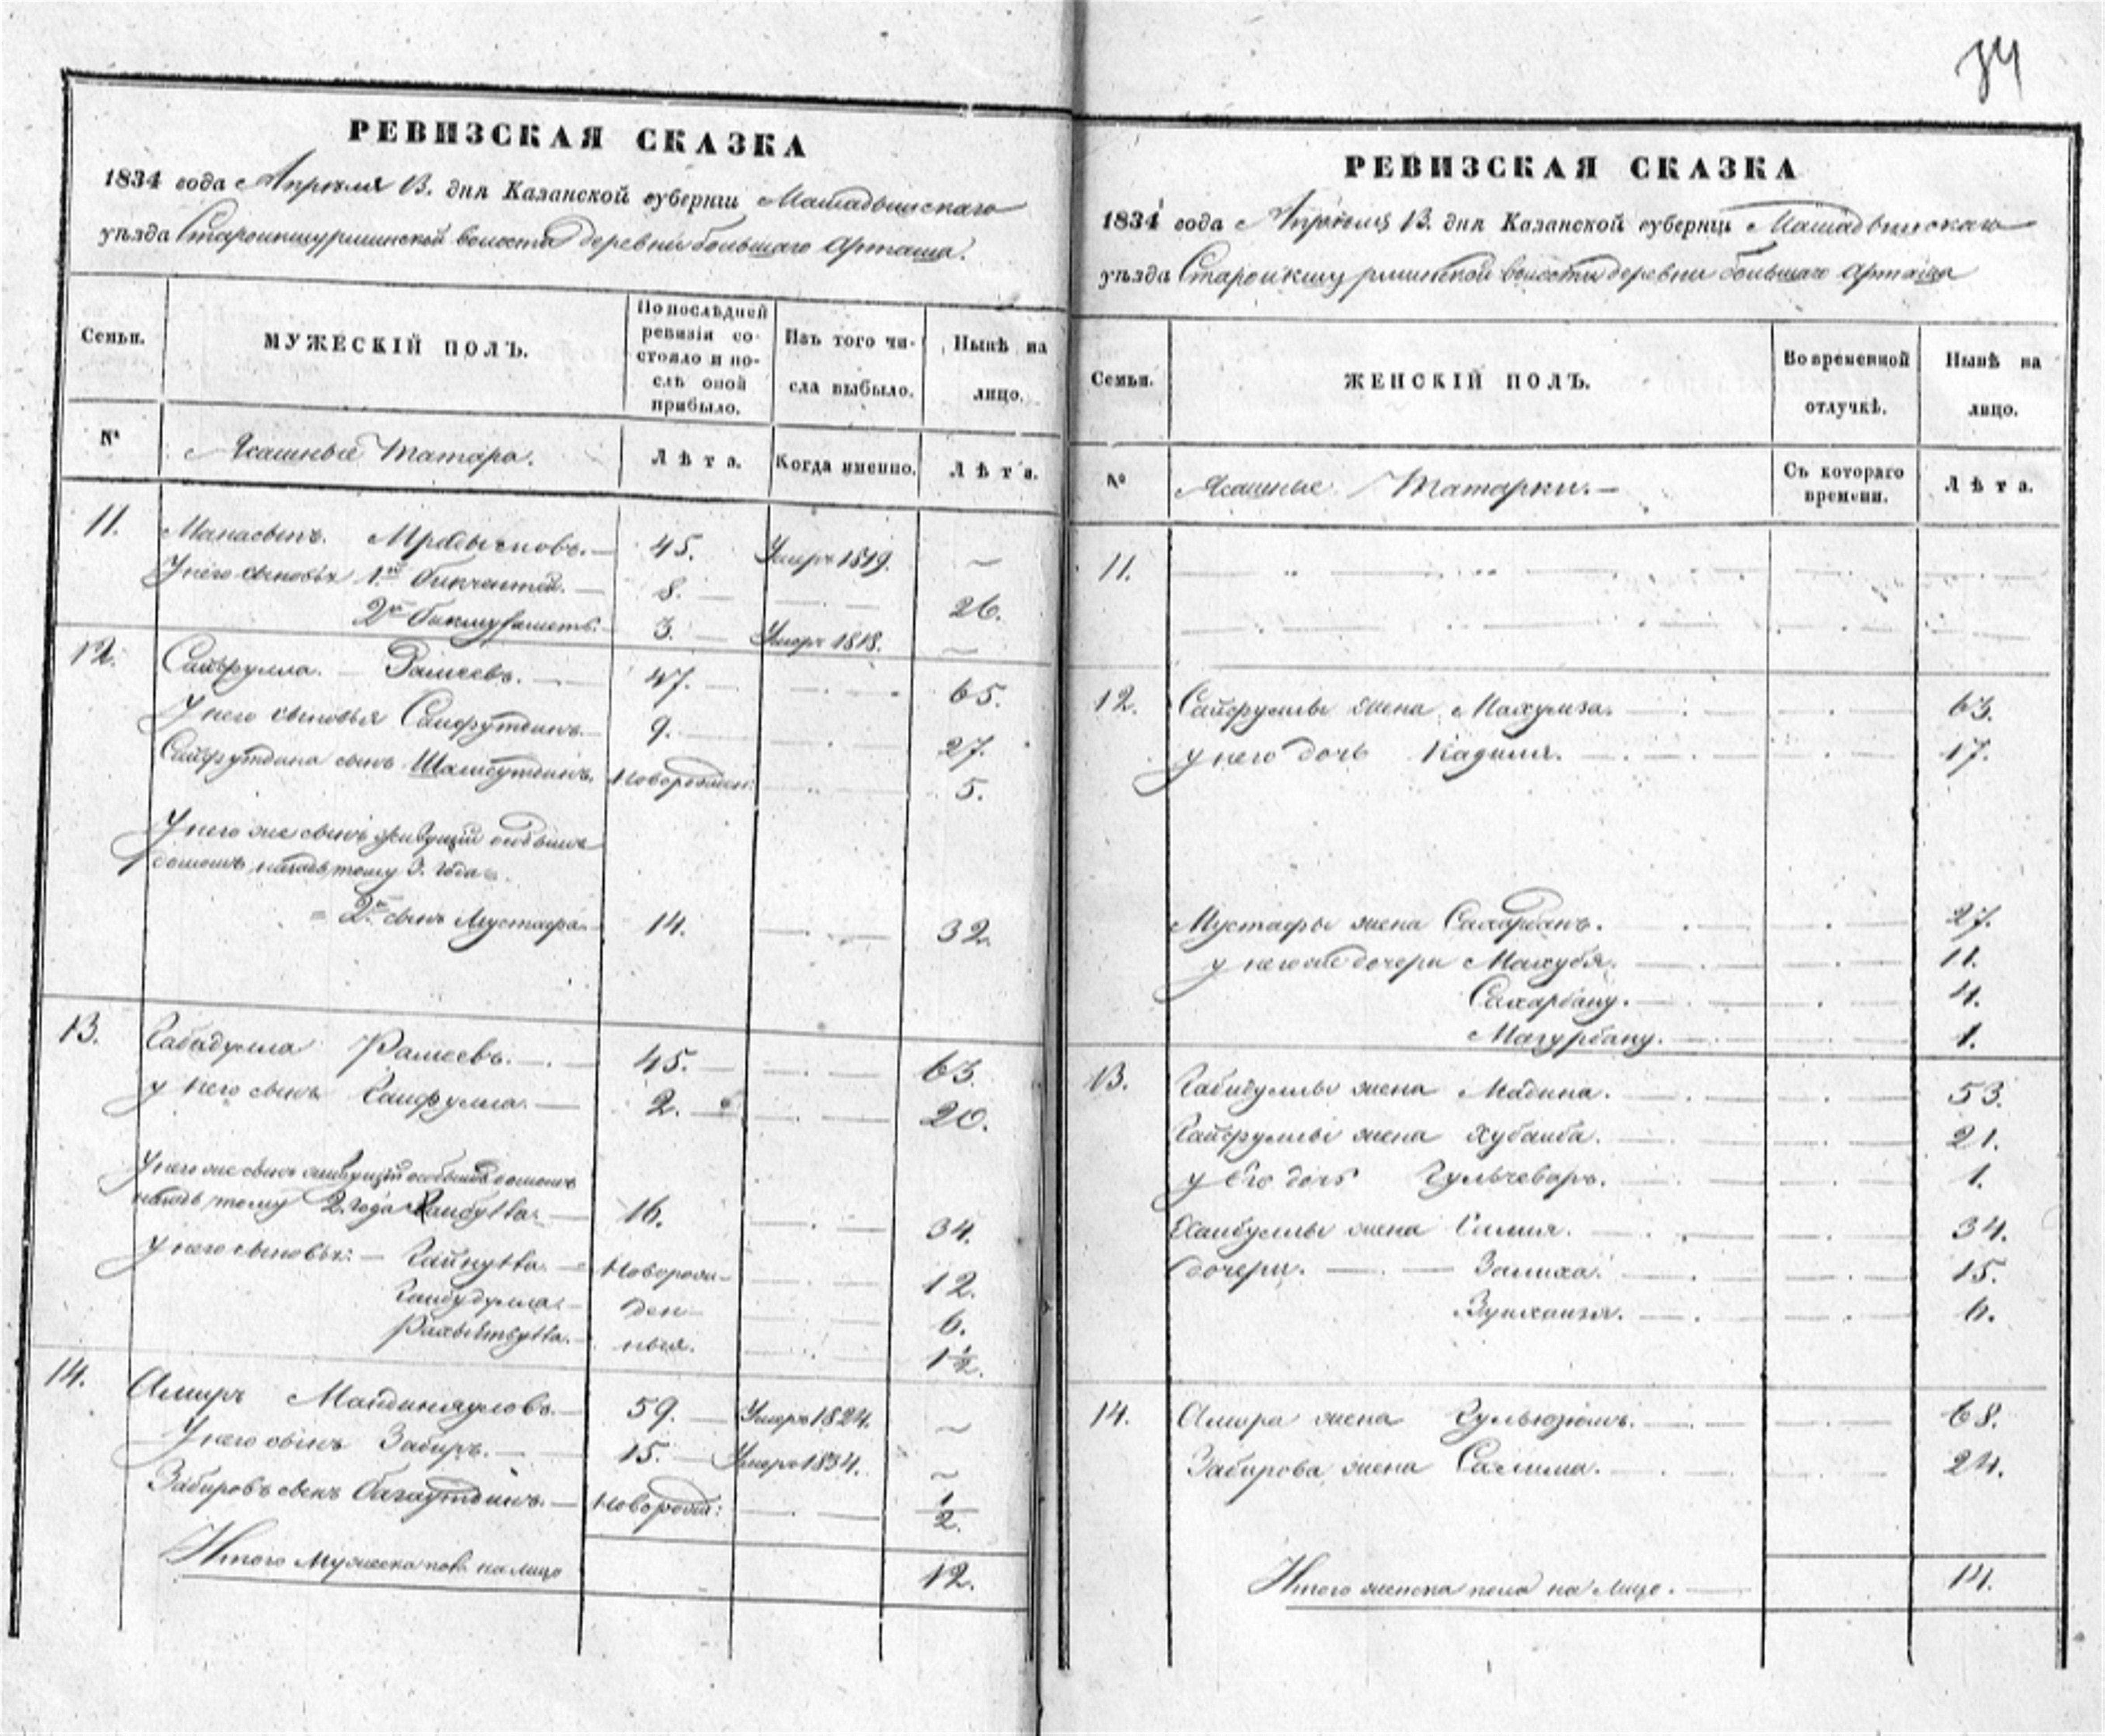 34
РЕВИЗСКАЯ СКАЗКА
1834 года Апреля 13. дня Казанской губернии Мамадышскаго
уѣзда Староикшурминской волости деревни большаго Арташа.
Семьи.
МУЖЕСКІЙ ПОЛЪ.
По послѣдней
ревизіи со-
стояло и по-
слѣ оной
прибыло.
Изъ того чи-
сла выбыло.
Нынѣ на
лицо.
№
Ясашные Татара.
Лѣта.
Когда именно.
Лѣта.
11. 45. Умеръ 1819. —
У него сыновья 1й 8. — 26.
2й 3. — Умеръ 1818. —
12. Сайфулла. — 47. — 65.
У него сыновья Сайфутдинъ. 9. 27.
Сайфутдина сынъ Шамсутдинъ. Новорожден: 5.
У него же сынъ живущій особымъ
домомъ назадъ тому 3. года
2й сынъ Мустафа 14. 32.
13. Габидулла 45. — 63.
у него сынъ Гайфулла. — 2. — 20.
У него же сынъ живущій особымъ домомъ
назадъ тому 2. года 16. 34.
У него сыновья: — Новорож- 12.
ден- 6.
ныя. 1½.
14. Амиръ 59. — Умеръ 1824. —
У него сынъ Забиръ. — 15. — Умеръ 1834. —
Забировъ сынъ Багаутдинъ. — Новорожд: ½.
Итого Мужеска пола на лицо 12.
РЕВИЗСКАЯ СКАЗКА
1834 года Апреля 13. дня Казанской губерніи Мамадышскаго
уѣзда Староикшурминской волости деревни большаго Арташа
Семьи.
ЖЕНСКІЙ ПОЛЪ.
Во временной
отлучкѣ.
Нынѣ на
лицо.
№
Ясашные Татарки. —
Съ котораго
времени.
Лѣта.
11.
12. Сайфуллы жена 63.
у него дочь Кадиля. 17.
Мустафы жена Сахарбанъ. 27.
у него же дочери Махубя. 11.
Сахарбану. 4.
Магурбану. 1.
13. Габидуллы жена Мадина. 53.
Гайфуллы жена Хубаиба. 21.
у Его дочь Гульчеваръ. 1.
Хаибуллы жена 34.
дочери. — Залиха. 15.
6.
14. Амира жена Гульюзюмъ. 68.
Забирова жена Салима. 24.
Итого женска пола на лицо. — 14.